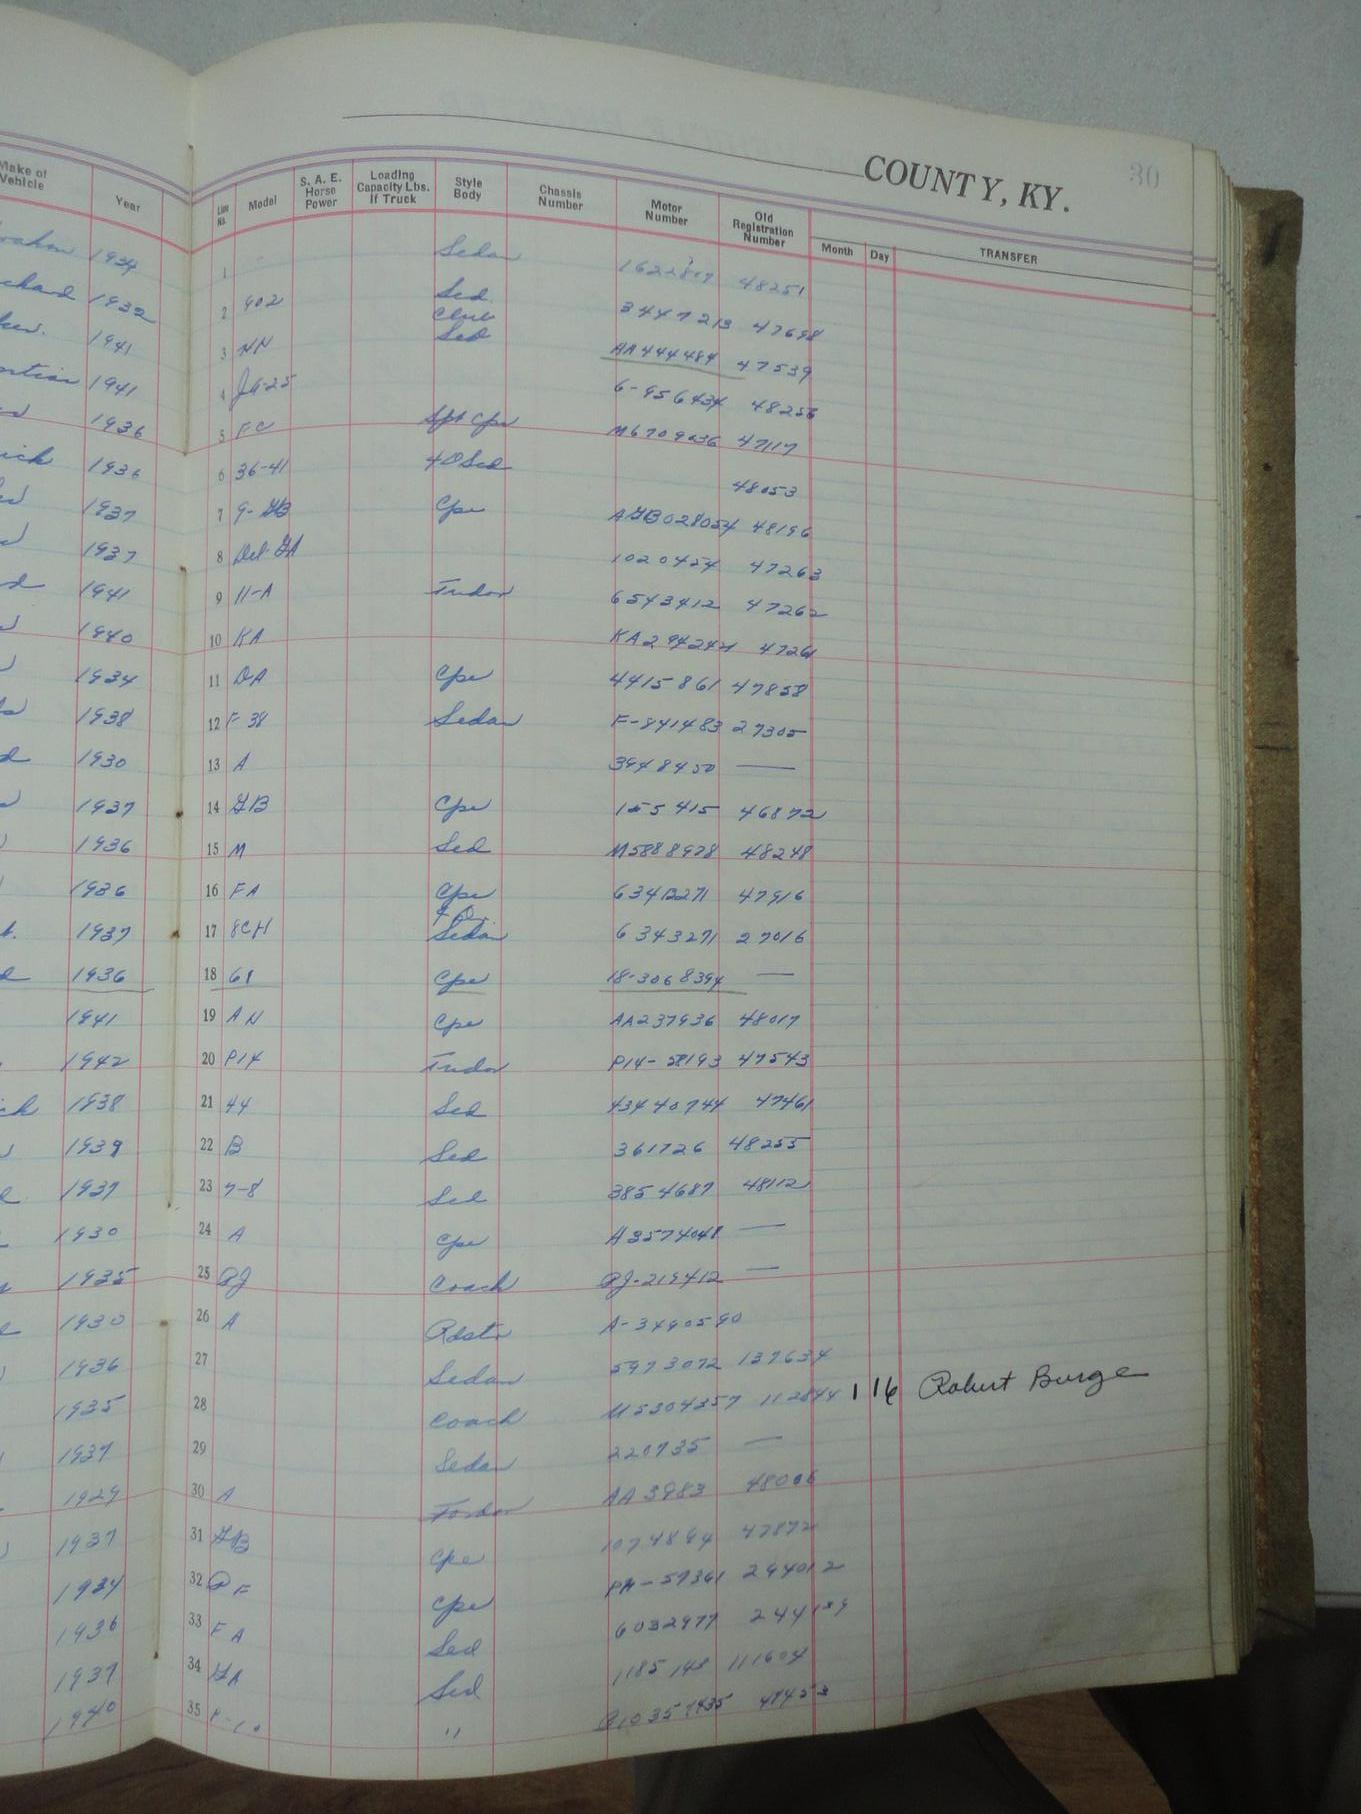 COUNTY, KY. 30
Make of Vehicle Year Line No. Model S. A. E. Horse Power Loading Capacity Lbs. If Truck Style Body Chassis Number Motor Number Old Registration Number Month Day TRANSFER
1934 1 Sedan 48251
1932 2 902 Sed. 3447213 47698
1941 3 NN Club Sed AA444484 47539
1941 4 6-956434
1936 5 FC Spt Cpe 47117
1936 6 36-41 4DSed 48053
1937 7 9-GB Cpe AGB028054 48196
1937 8 Del-GA 1020454 47263
1941 9 11-A Tudor 6543412 47262
1940 10 KA 47261
1934 11 DA Cpe 4415861 47858
1938 12 F-38 Sedan F-841483 27305
1930 13 A 3948450 —
1937 14 GB Cpe 155415 46872
1936 15 M Sed M5888978 48248
1936 16 FA Cpe 47916
1937 17 8CH 4 Dr. Sedan 6343271 27016
1936 18 61 Cpe 18-3068394 —
1941 19 AN Cpe AA237936 48017
1942 20 P14 Tudor 47543
1938 21 44 Sed 43440744 47461
1939 22 B Sed 361726 48255
1937 23 7-8 Sed 3854687 48112
1930 24 A Cpe A3574048 —
1935 25 PJ Coach PJ-219412 —
1930 26 A Rdstr A-3490590
1936 27 Sedan 5973072 137634
1935 28 Coach M5304357 112844 1 16 Robert Burge
1937 29 Sedan 220735 —
1929 30 A Fordor AA3983 48006
1937 31 GB Cpe 1074894 47872
1934 32 PF Cpe 244012
1936 33 FA Sed 6032977
1937 34 GA Sed 111604
1940 35 P-10 "